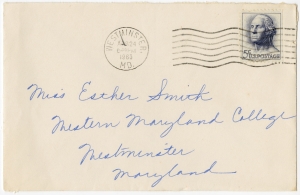 WESTMINSTER
1963
MD.
5¢ U.S. POSTAGE
Miss Esther Smith
Western Maryland College
Westminster
Maryland